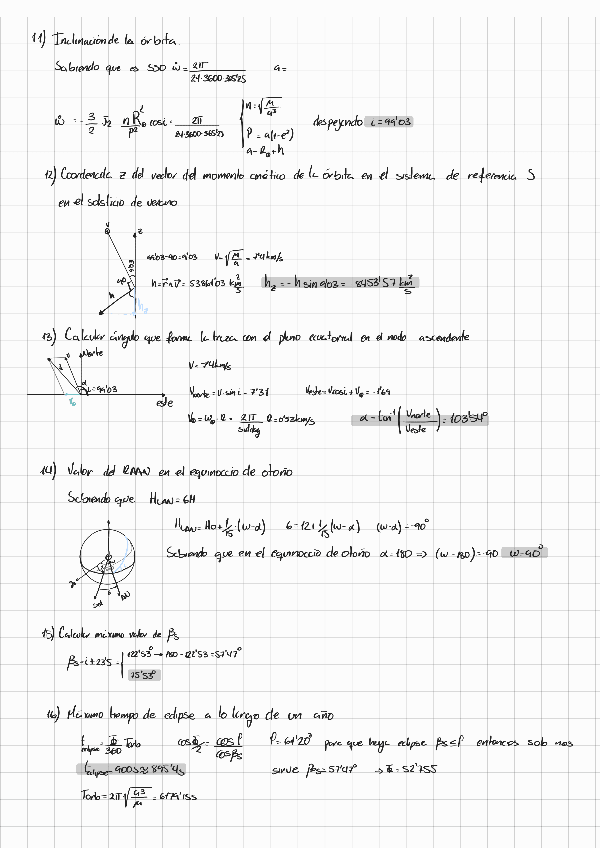 11) Inclinación de la órbita
Sabiendo que es SSO ω̇ = 2π / 24·3600·365'25 a =
ω̇ = -3/2 J2 n R⊕² / p² cos i = 2π / 24·3600·365'25 { n = √(μ/a³) p = a(1-e²) a = R⊕ + h despejando i = 99'03
12) Coordenada z del vector del momento cinético de la órbita en el sistema de referencia S
en el solsticio de verano
v z 9'03 90 h hz
99'03-90=9'03 V = √(μ/a) = 7'4 km/s
h = r⃗ ∧ v⃗ = 53861'03 km²/s hz = - h sin 9'03 = 8453'57 km²/s
13) Calcular ángulo que forma la traza con el plano ecuatorial en el nodo ascendente
Norte v α i=99'03 este
V = 7'4 km/s
Vnorte = V·sin i = 7'31 Veste = V cos i + V⊕ = -1'69
V⊕ = ω⊕·R = 2π / R = 0'52 km/s α = tan⁻¹ (Vnorte / Veste) = 103'54°
14) Valor del RAAN en el equinoccio de otoño
Sabiendo que HLAN = 6H
HLAN = Ho + 1/15 (ω-α) 6 = 12 + 1/15 (ω-α) (ω-α) = -90°
Sabiendo que en el equinoccio de otoño α = 180 ⇒ (ω-180) = -90 ω = 90°
γ Sol AN
15) Calcular máximo valor de βs
βs = i ± 23'5 = { 122'53° → 180 - 122'53 = 57'47°
75'53°
16) Máximo tiempo de eclipse a lo largo de un año
t eclipse = Φ/360 Torb cos Φ/2 = cos ρ / cos βs ρ = 61'20° para que haya eclipse βs < ρ entonces solo nos
t eclipse = 900s ≈ 895'4s sirve βs = 57'47° → Φ = 52'155
Torb = 2π √(a³/μ) = 6179'155